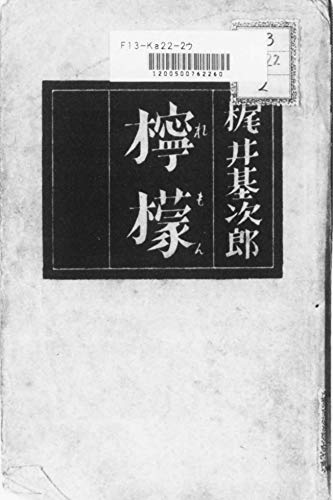 F13-Ka22-2ウ
1200500762260
3
22
2
梶井基次郎
檸檬
れもん